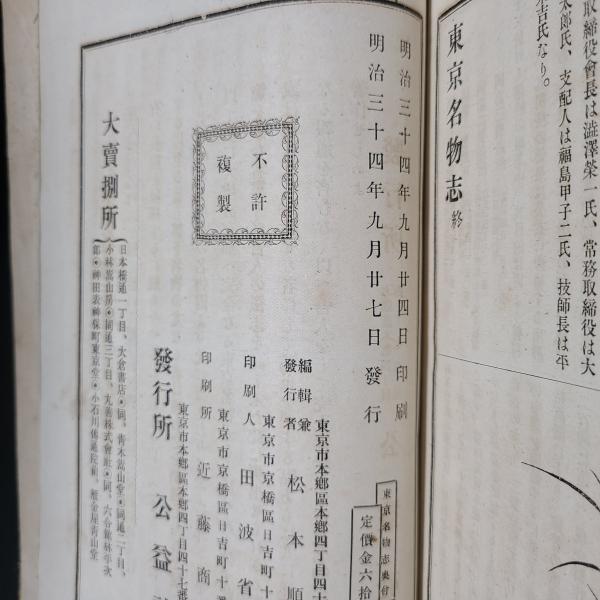 取締役會長は澁澤榮一氏、常務取締役は大
太郎氏、支配人は福島甲子二氏、技師長は平
吉氏なり。
東京名物志 終
東京名物志奥付
定價金六拾
明治三十四年九月廿四日印刷
明治三十四年九月廿七日發行
不許
複製
東京市本鄕區本鄕四丁目四十
編輯兼
發行者
松本順
東京市京橋區日吉町十
印刷人
田波省
東京市京橋區日吉町十番
印刷所
近藤商
東京市本鄕區本鄕四丁目四十七番
發行所
公益
大賣捌所
日本橋通一丁目、大倉書店・同、靑木嵩山堂・同通二丁目、
小林嵩山房・同通三丁目、丸善株式會社・同、六合館林平次
郞・神田表神保町東京堂・小石川傳通院前、雁金屋靑山堂